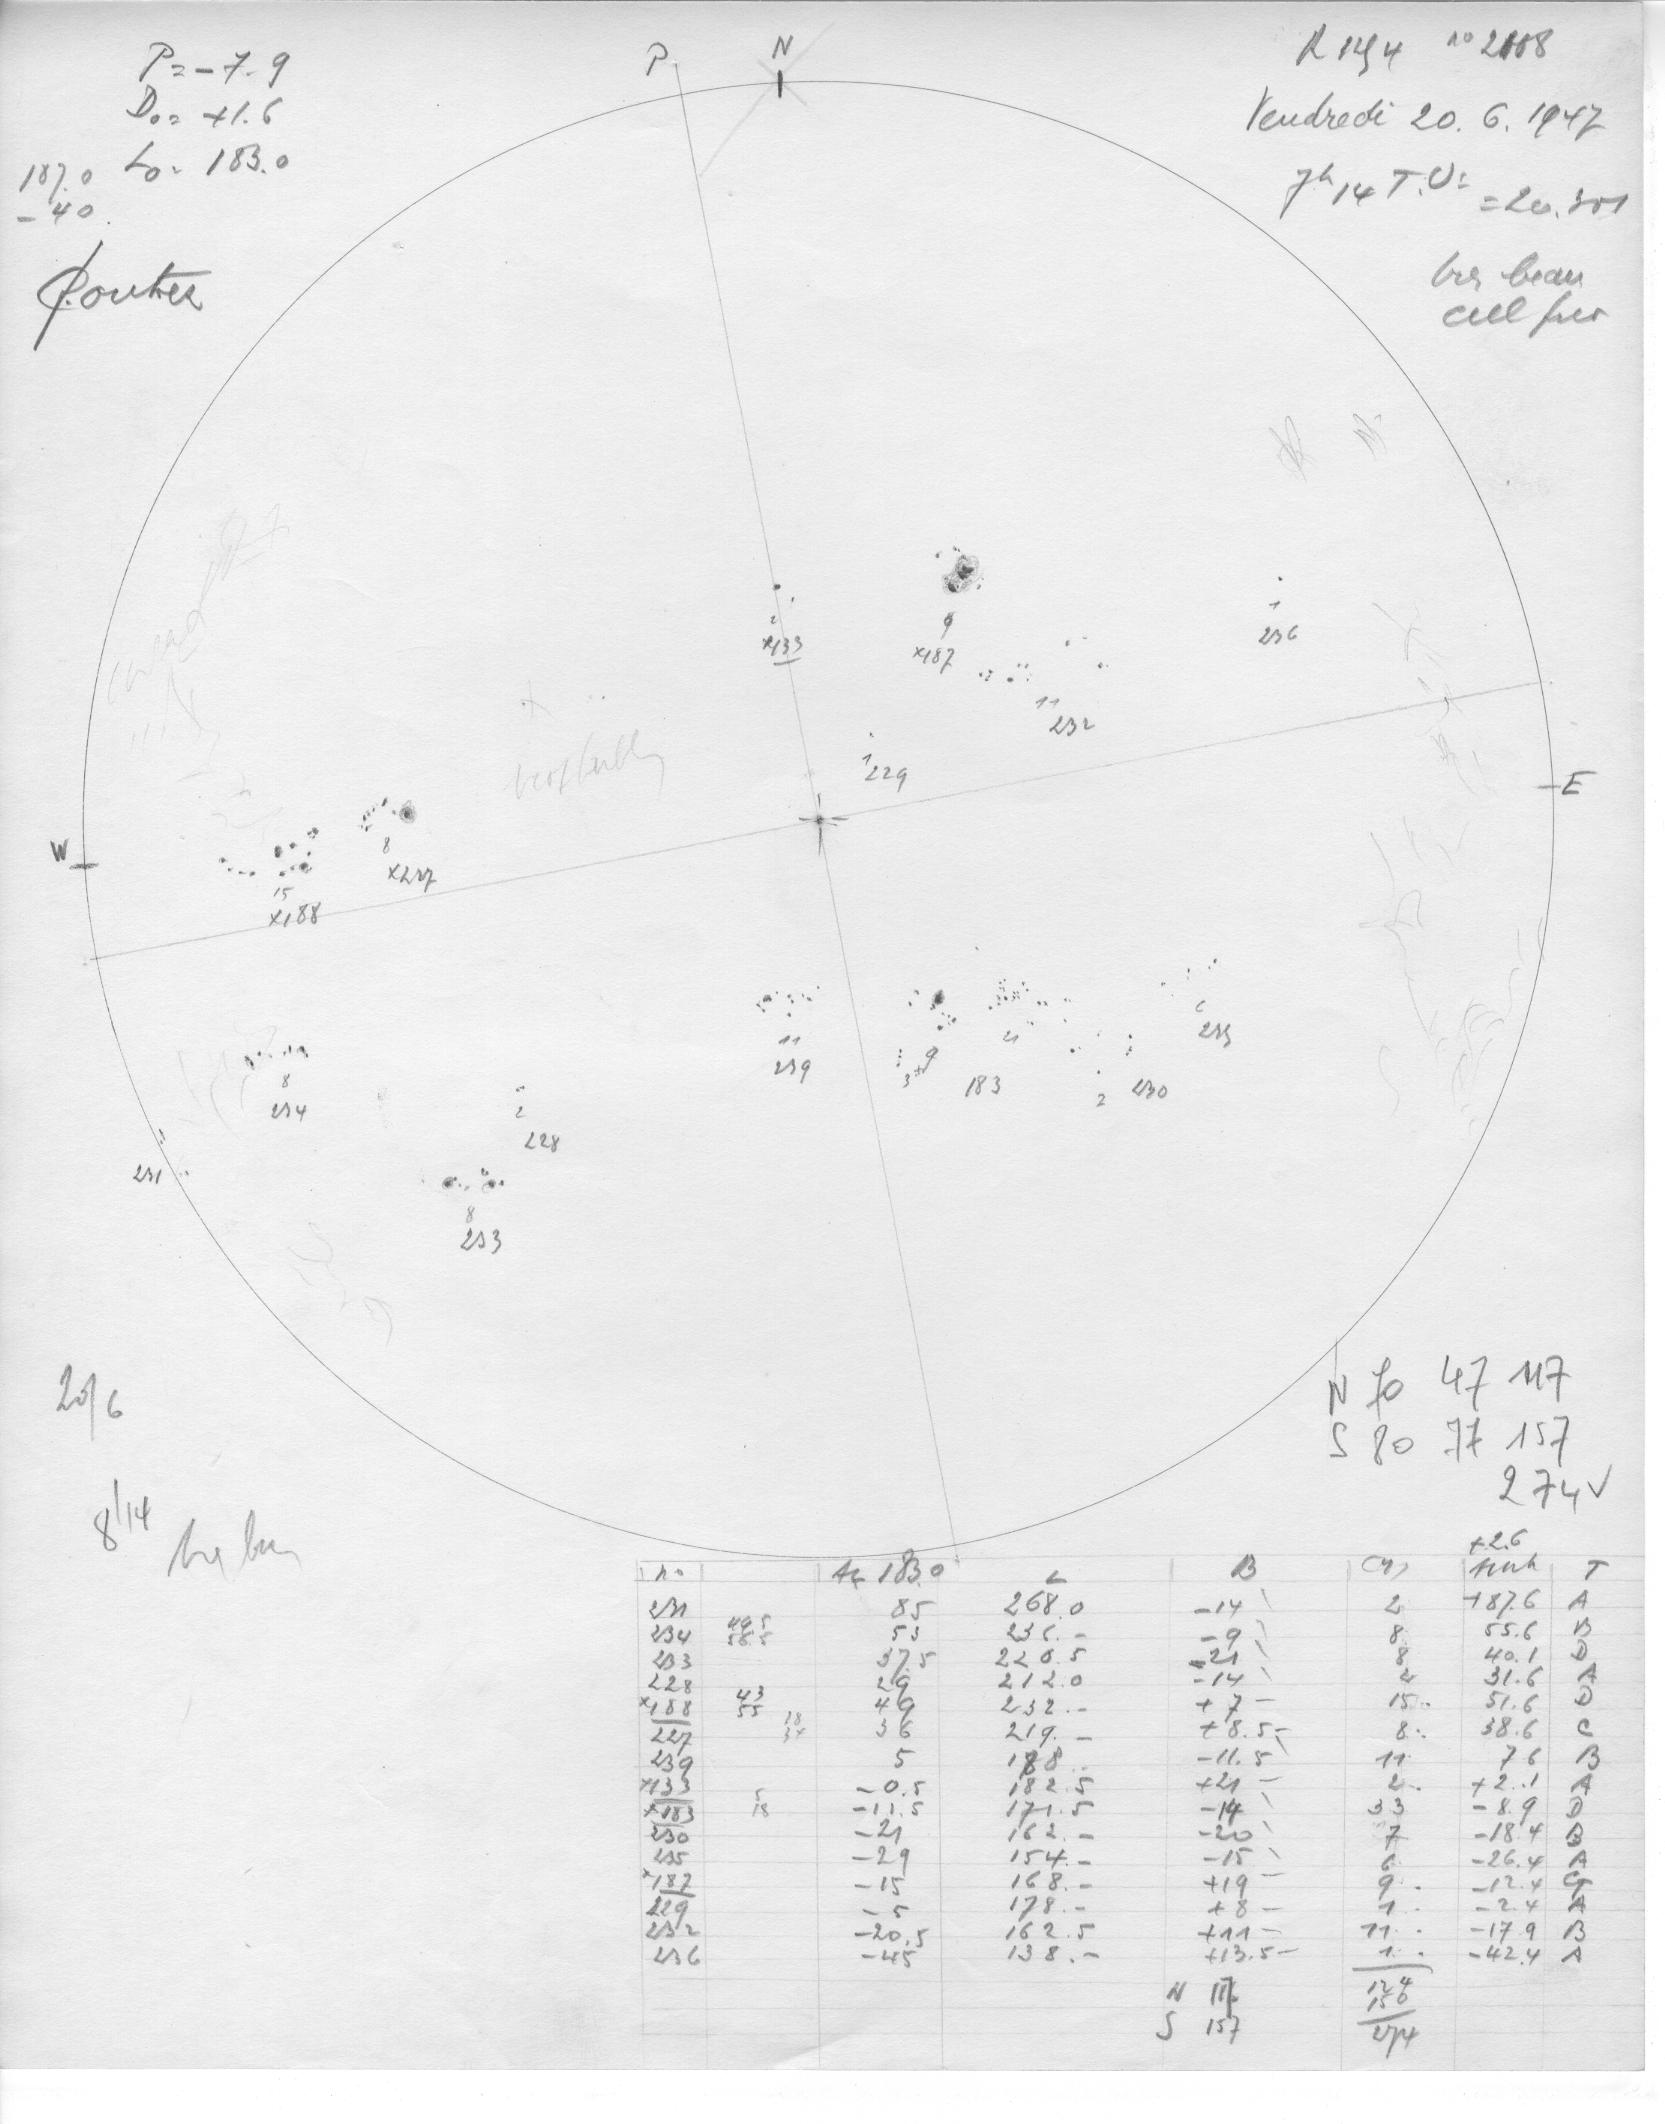 P=-7.9
D₀= +1.6
L₀= 183.0
187.0
-40
P
N
no 2108
Vendredi 20. 6. 1947
7h 14 T.U.
= 20.301
très beau
W
E
2
x133
9
x187
1
236
11
232
1 229
8
x227
15
x188
11
239
9
3+
183
21
6
235
2
230
8
234
2
228
231
8
233
20/6
8h14
N 70 47 117
S 80 77 157
274 √
+2.6
no 183.0 L B T
231 85 268.0 -14 2 +87.6 A
234 53 236.- -9 8 55.6 B
233 37.5 220.5 -21 8 40.1 D
228 29 212.0 -14 2 31.6 A
x188 43 55 49 232.- +7 15 51.6 D
227 36 219.- +8.5 8 38.6 C
239 5 188 -11.5 11 7.6 B
x133 -0.5 182.5 +21 2 +2.1 A
x183 5 18 -11.5 171.5 -14 33 -8.9 D
230 -21 162.- -20 7 -18.4 B
235 -29 154.- -15 6 -26.4 A
x187 -15 168.- +19 9 -12.4
229 -5 178.- +8 1 -2.4 A
232 -20.5 162.5 +11 11 -17.9 B
236 -45 138.- +13.5 1 -42.4 A
N 117 124
S 157 150
274